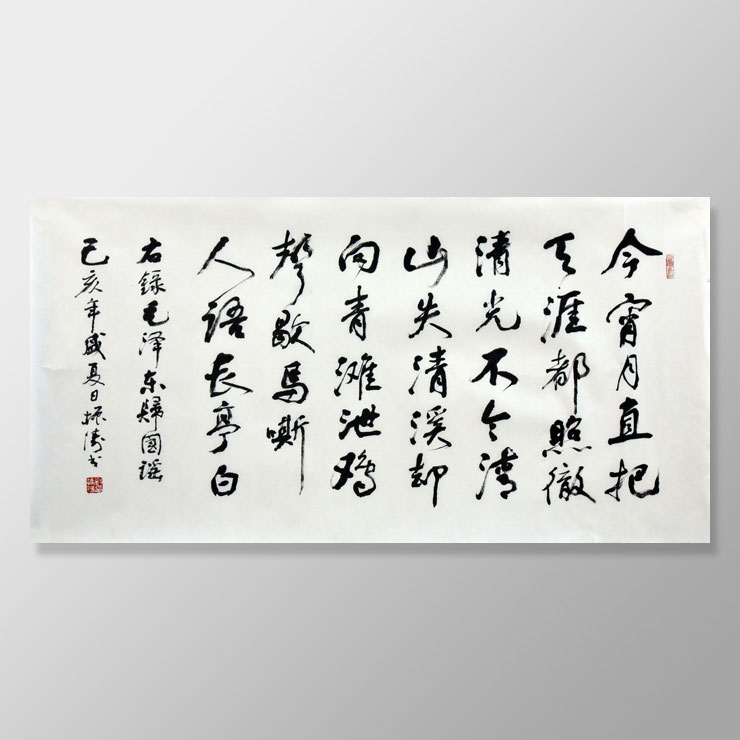 今宵月直把
天涯都照徹
清光不令青
山失清溪却
向青滩泄鸡
聲歇馬嘶
人语長亭白
右録毛泽东歸國謡
己亥年盛夏日振涛书